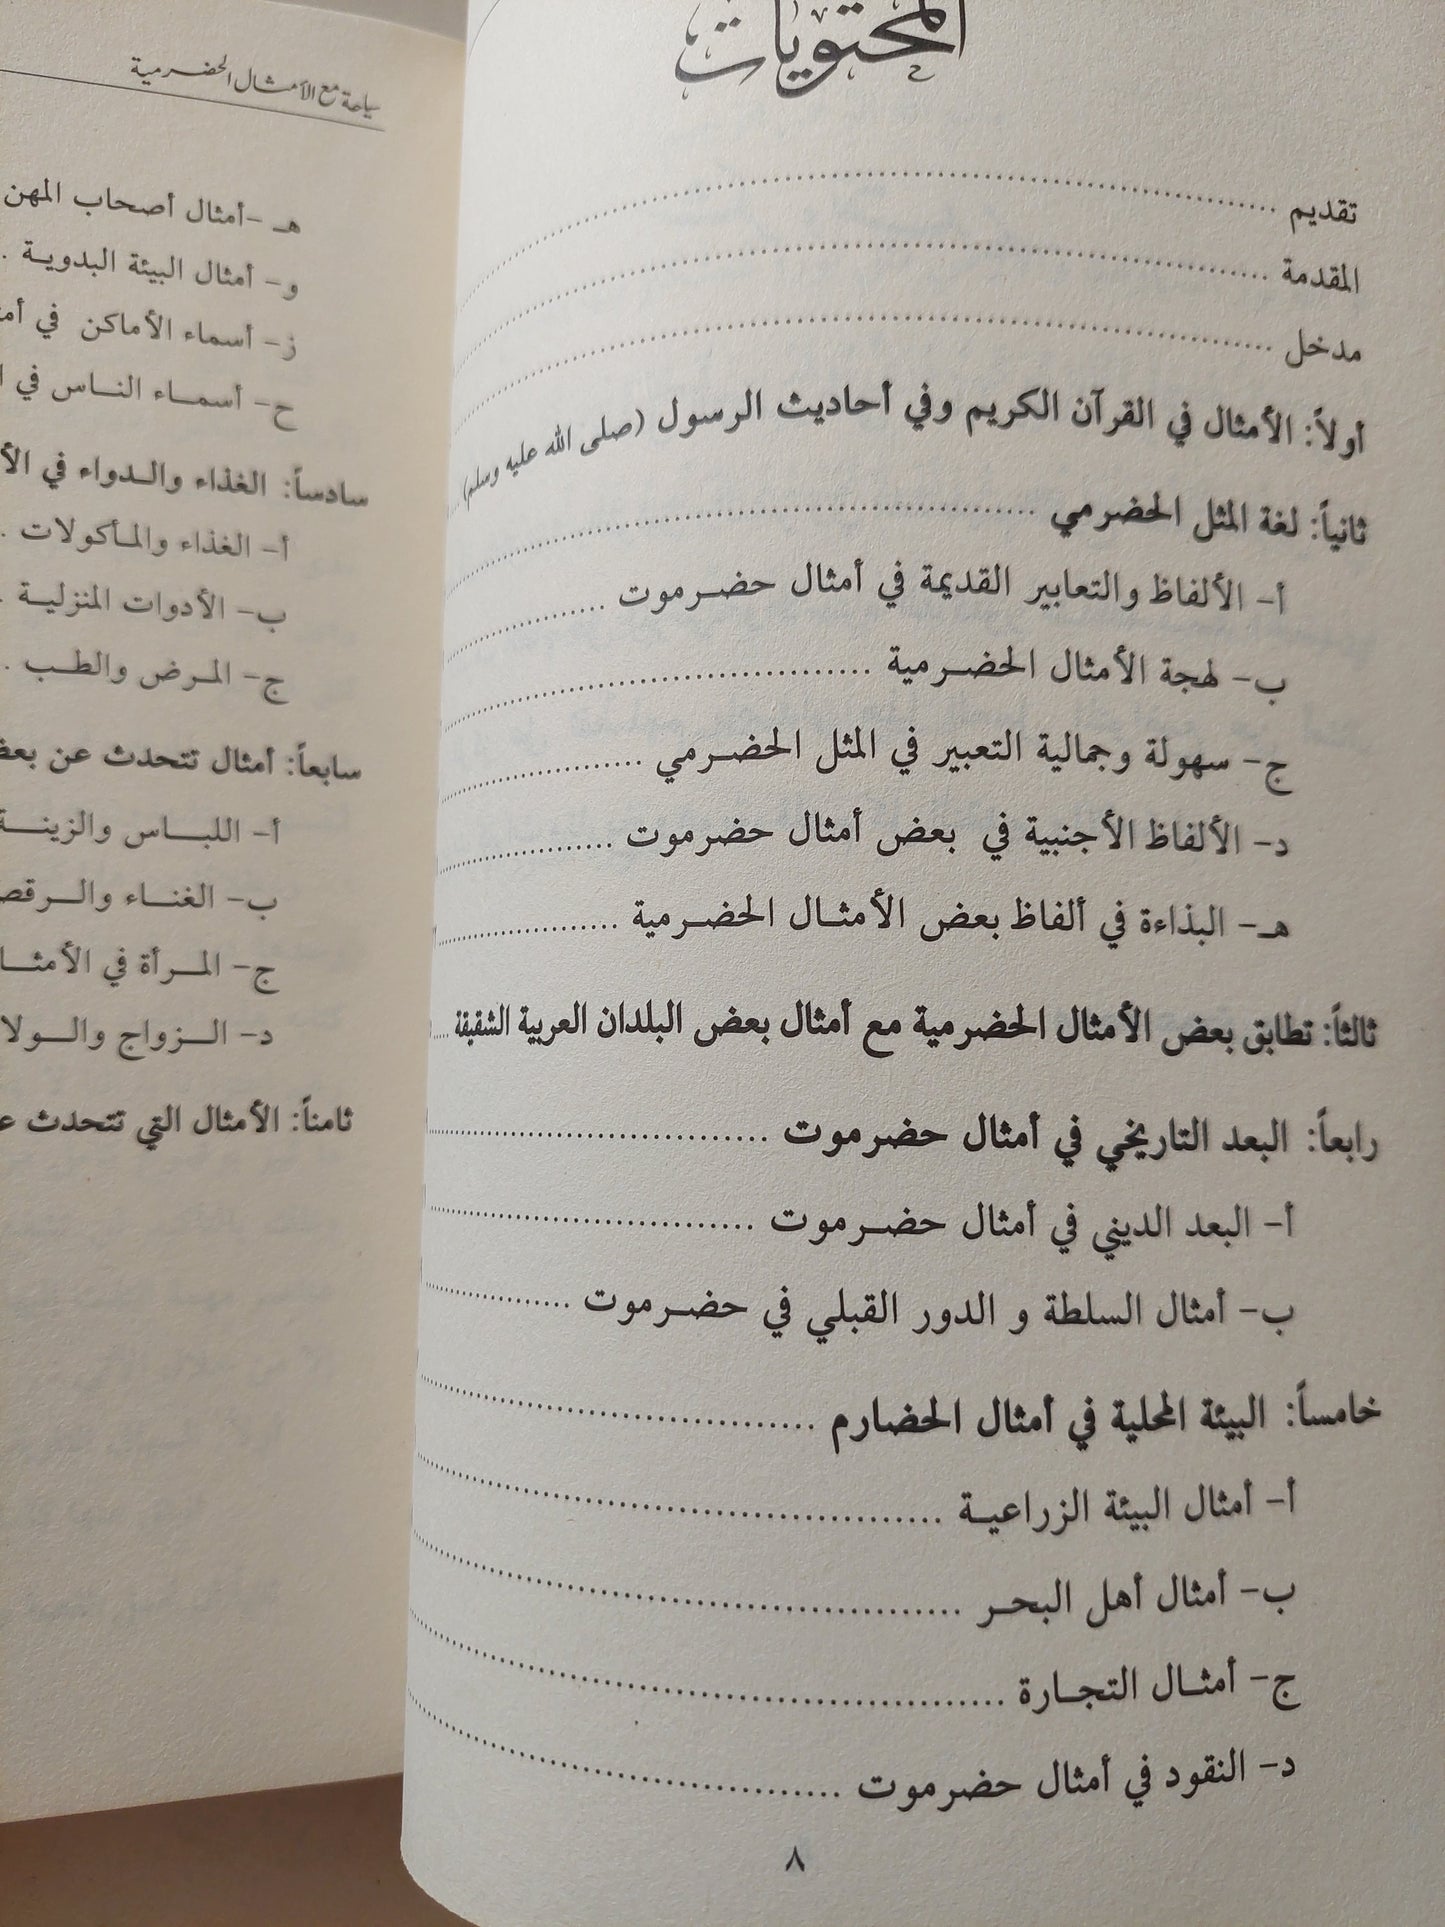 المحتويات
تقديم ........................
المقدمة ........................
مدخل ........................
أولاً: الأمثال في القرآن الكريم وفي أحاديث الرسول (صلى الله عليه وسلم) .
ثانياً: لغة المثل الحضرمي ........................
أ- الألفاظ والتعابير القديمة في أمثال حضرموت ........................
ب- لهجة الأمثال الحضرمية ........................
ج- سهولة وجمالية التعبير في المثل الحضرمي ........................
د- الألفاظ الأجنبية في بعض أمثال حضرموت ........................
هـ- البذاءة في ألفاظ بعض الأمثال الحضرمية ........................
ثالثاً: تطابق بعض الأمثال الحضرمية مع أمثال بعض البلدان العربية الشقيقة ....
رابعاً: البعد التاريخي في أمثال حضرموت ........................
أ- البعد الديني في أمثال حضرموت ........................
ب- أمثال السلطة و الدور القبلي في حضرموت ........................
خامساً: البيئة المحلية في أمثال الحضارم ........................
أ- أمثال البيئة الزراعية ........................
ب- أمثال أهل البحر ........................
ج- أمثال التجارة ........................
د- النقود في أمثال حضرموت ........................
٨
سياحة مع الأمثال الحضرمية
هـ -أمثال أصحاب المهن
و- أمثال البيئة البدوية .
ز- أسماء الأماكن في
ح- أسماء الناس في
سادساً: الغذاء والدواء في
أ- الغذاء والمأكولات .
ب- الأدوات المنزلية .
ج- المرض والطب .
سابعاً: أمثال تتحدث عن
أ- اللباس والزينة
ب- الغناء والرقص
ج- المرأة في
د- الزواج
ثامناً: الأمثال التي تتحدث